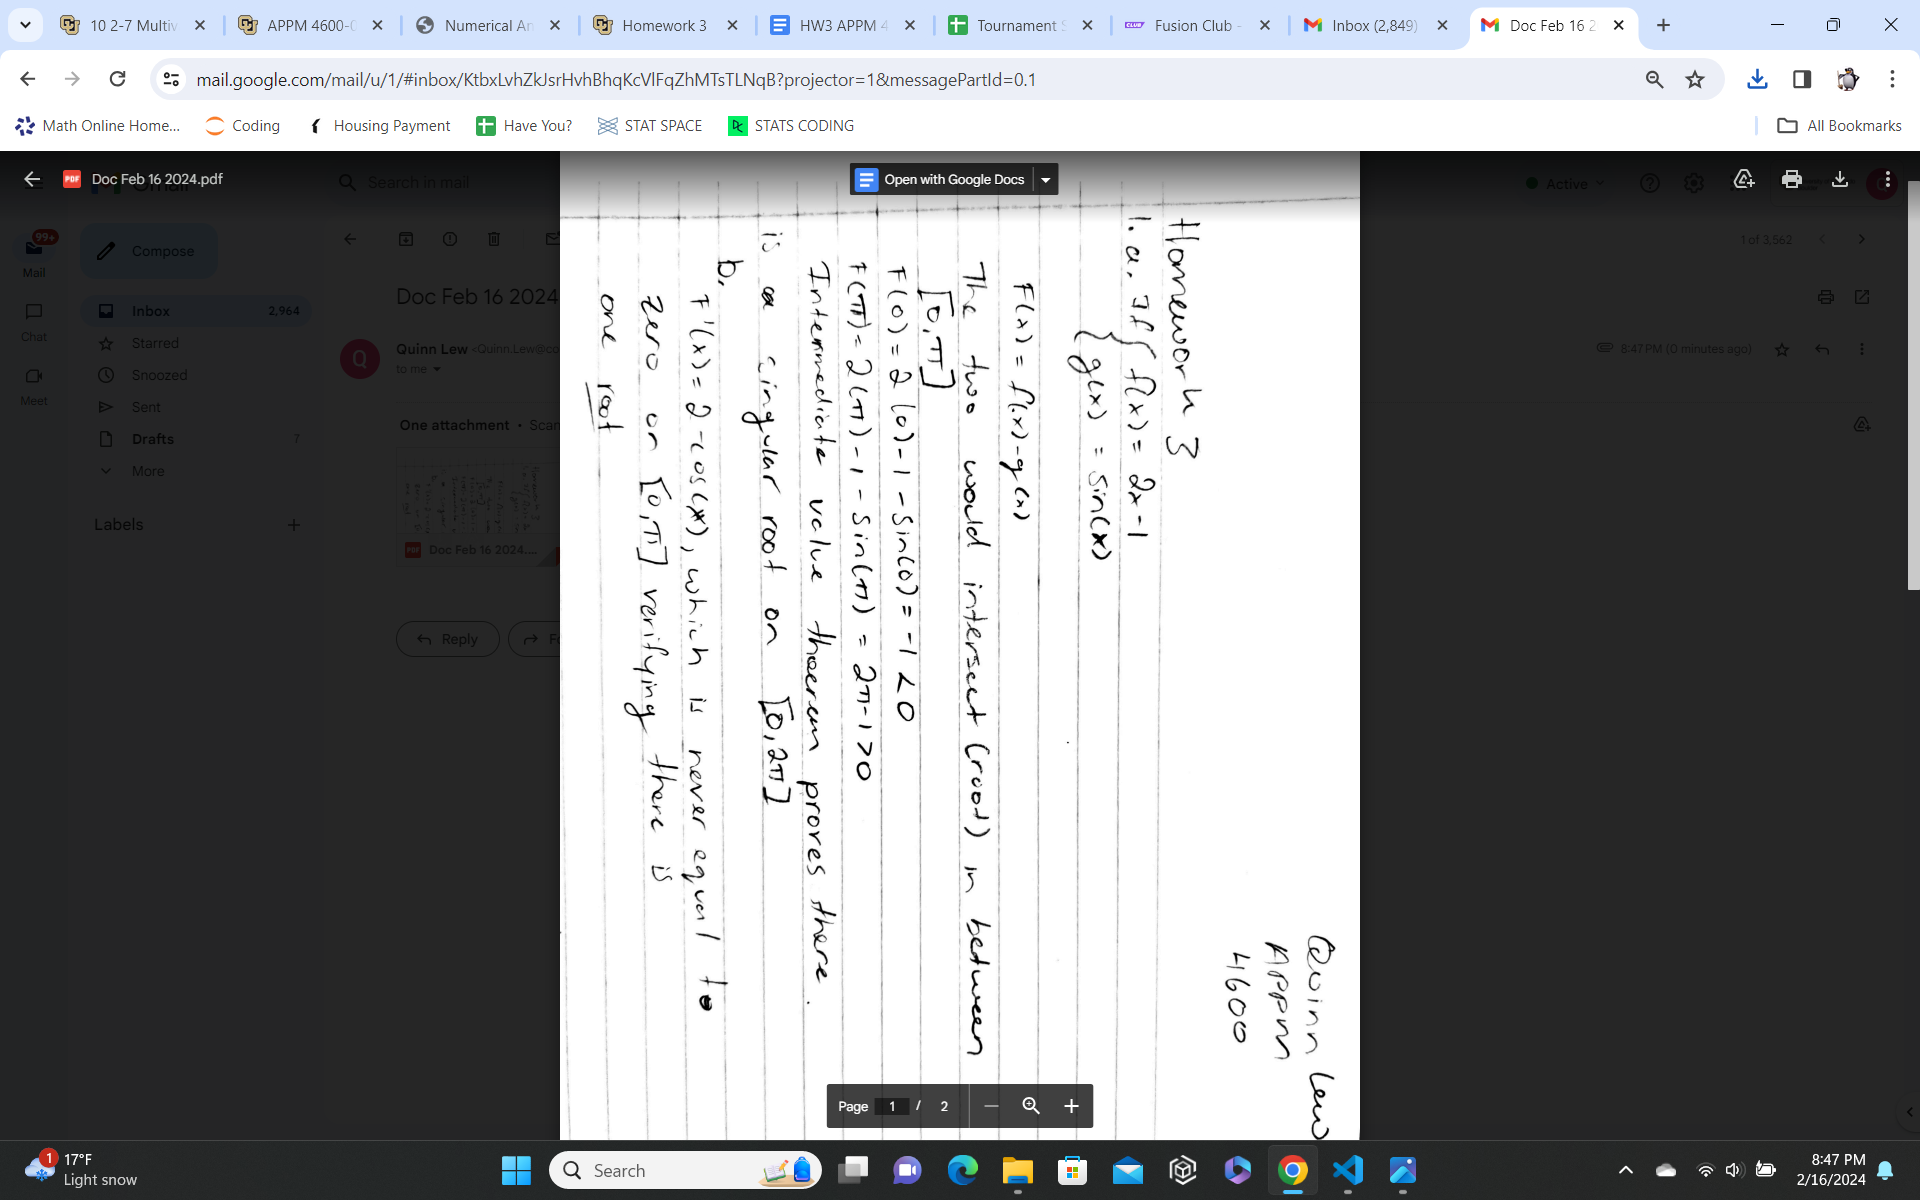 10 2-7 Multiv
APPM 4600-0
Numerical An
Homework 3
HW3 APPM 4
Tournament S
Fusion Club -
Inbox (2,849)
Doc Feb 16 2
mail.google.com/mail/u/1/#inbox/KtbxLvhZkJsrHvhBhqKcVlFqZhMTsTLNqB?projector=1&messagePartId=0.1
Math Online Home...
Coding
Housing Payment
Have You?
STAT SPACE
STATS CODING
All Bookmarks
PDF Doc Feb 16 2024.pdf
Search in mail
Open with Google Docs
Active
99+
Mail
Compose
1 of 3,562
Chat
Meet
Inbox 2,964
Starred
Snoozed
Sent
Drafts 7
More
Labels
Doc Feb 16 2024
Q
Quinn Lew <Quinn.Lew@co
to me
8:47 PM (0 minutes ago)
One attachment • Scan
PDF Doc Feb 16 2024....
Reply
Fo
Quinn Lew
APPM
4600
Homework 3
1. a. If { f(x) = 2x-1
{ g(x) = sin(x)
F(x) = f(x)-g(x)
The two would intersect (root) in between
[0,π]
F(0) = 2(0)-1-sin(0) = -1 < 0
F(π) = 2(π)-1-sin(π) = 2π-1>0
Intermediate value thoerum proves there
is a cingular root on [0,2π]
b.
F'(x) = 2-cos(x), which is never equal to
zero on [0,π] verifying there is
one root
Page 1 / 2
1
17°F
Light snow
Search
8:47 PM
2/16/2024